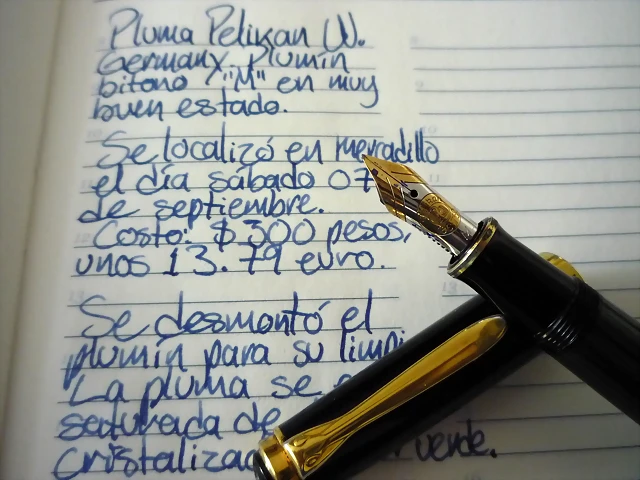 Pluma Pelikan W.
Germany. Plumín
bitono "M" en muy
buen estado.
Se localizó en mercadillo
el día sábado 07
de septiembre.
Costo: $300 pesos,
unos 13.79 euro.
Se desmontó el
plumín para su
La pluma se
saturada de
verde.